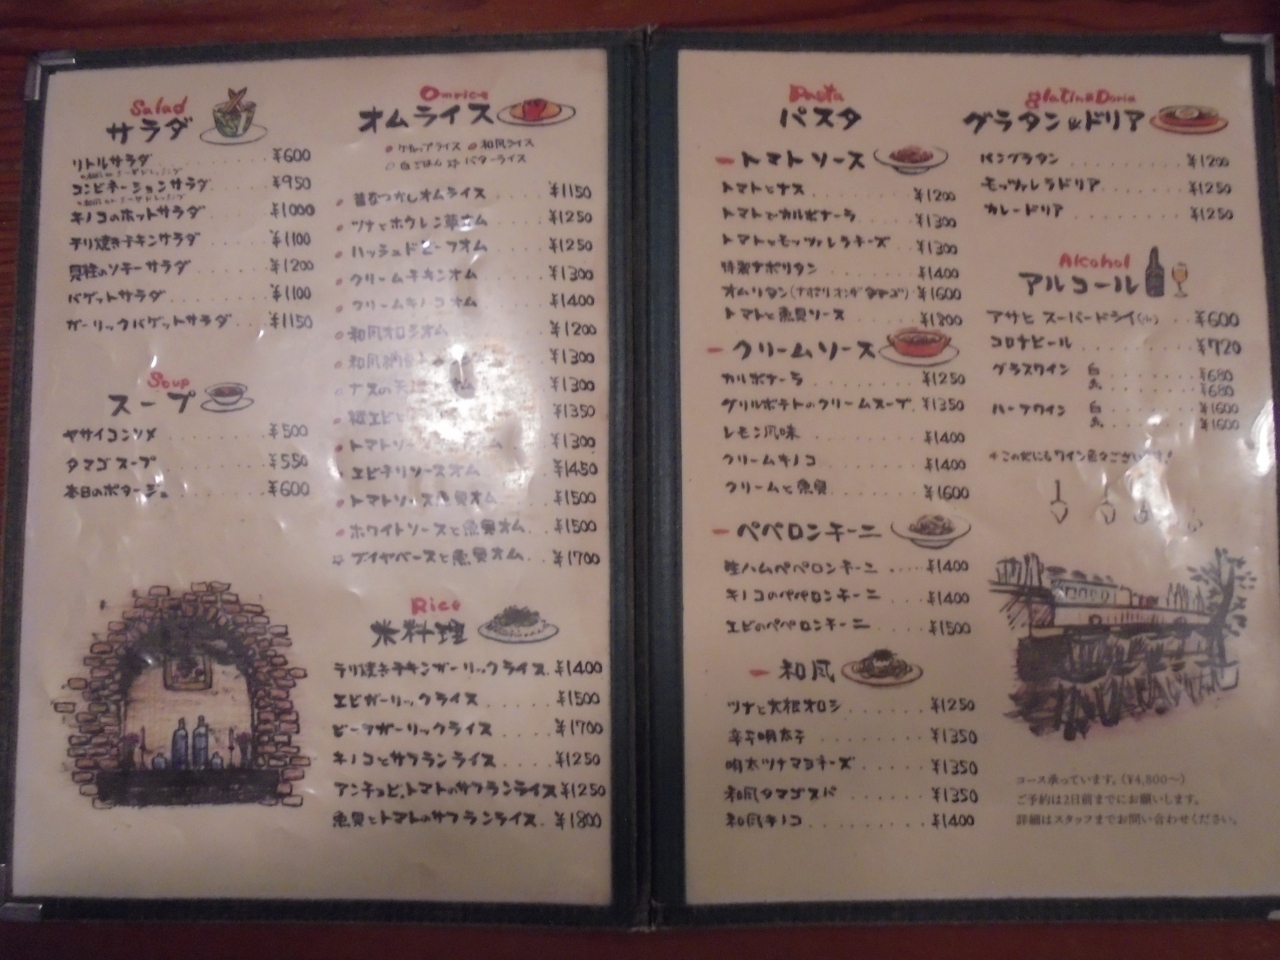 Salad
サラダ
リトルサラダ ¥600
コンビネーションサラダ ¥950
キノコのホットサラダ ¥1000
テリ焼きチキンサラダ ¥1100
貝柱のソテーサラダ ¥1200
バゲットサラダ ¥1100
ガーリックバゲットサラダ ¥1150
Soup
スープ
ヤサイコンソメ ¥500
タマゴスープ ¥550
本日のポタージュ ¥600
Omrice
オムライス
ケチャップライス 和風ライス
白ごはん バターライス
昔なつかしオムライス ¥1150
ツナとホウレン草オム ¥1250
ハッシュドビーフオム ¥1250
クリームチキンオム ¥1300
クリームキノコオム ¥1400
和風オロシオム ¥1200
和風納 ¥1300
ナスの オム ¥1300
¥1350
トマトソー オム ¥1300
エビチリソースオム ¥1450
トマトソースと魚貝オム ¥1500
ホワイトソースと魚貝オム ¥1500
ブイヤベースと魚貝オム ¥1700
Rice
米料理
テリ焼きチキンガーリックライス ¥1400
エビガーリックライス ¥1500
ビーフガーリックライス ¥1700
キノコとサフランライス ¥1250
アンチョビ、トマトのサフランライス ¥1250
魚貝とトマトのサフランライス ¥1800
Pasta
パスタ
ートマトソース
トマトとナス ¥1200
トマトでカルボナーラ ¥1300
トマトとモッツァレラチーズ ¥1300
特製ナポリタン ¥1400
オムリタン(ナポリオンザタマゴ) ¥1600
トマトと魚貝ソース ¥1800
ークリームソース
カルボナーラ ¥1250
グリルポテトのクリームスープ ¥1350
レモン風味 ¥1400
クリームキノコ ¥1400
クリームと魚貝 ¥1600
ーペペロンチーニ
生ハムペペロンチーニ ¥1400
キノコのペペロンチーニ ¥1400
エビのペペロンチーニ ¥1500
ー和風
ツナと大根オロシ ¥1250
辛子明太子 ¥1350
明太ツナマヨチーズ ¥1350
和風タマゴスパ ¥1350
和風キノコ ¥1400
glatin&Doria
グラタン&ドリア
パングラタン ¥1200
モッツァレラドリア ¥1250
カレードリア ¥1250
Alcohol
アルコール
アサヒ スーパードライ(小) ¥600
コロナビール ¥720
グラスワイン 白 ¥680
赤 ¥680
ハーフワイン 白 ¥1600
赤 ¥1600
この他にもワイン色々ございます!
コース承っています。(¥4,800～)
ご予約は2日前までにお願いします。
詳細はスタッフまでお問い合わせください。